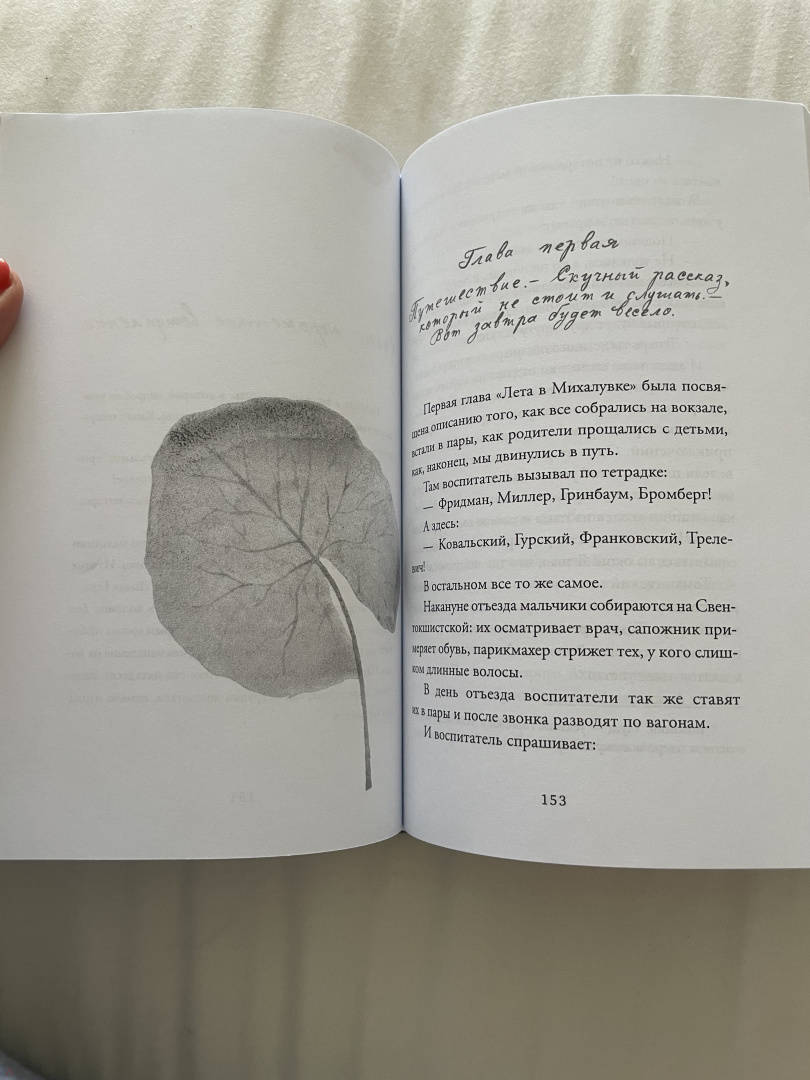 Глава первая
Путешествие.— Скучный рассказ,
который не стоит и слушать.—
Вот завтра будет весело.
Первая глава «Лета в Михалувке» была посвя-
щена описанию того, как все собрались на вокзале,
встали в пары, как родители прощались с детьми,
как, наконец, мы двинулись в путь.
Там воспитатель вызывал по тетрадке:
— Фридман, Миллер, Гринбаум, Бромберг!
А здесь:
— Ковальский, Гурский, Франковский, Треле-
вич!
В остальном все то же самое.
Накануне отъезда мальчики собираются на Свен-
токшистской: их осматривает врач, сапожник при-
меряет обувь, парикмахер стрижет тех, у кого слиш-
ком длинные волосы.
В день отъезда воспитатели так же ставят
их в пары и после звонка разводят по вагонам.
И воспитатель спрашивает:
153